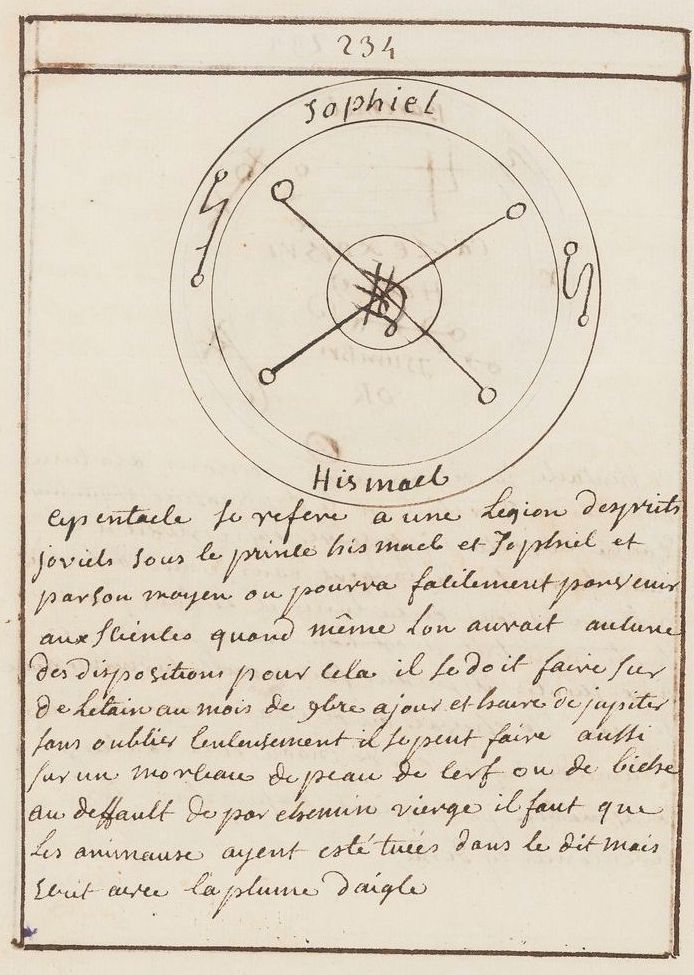 234
Sophiel
Hismael
Cepentacle se refere a une Legion desprits
joviels sous le prince hismael et Jophiel et
parson moyen on pourra facilement parvenir
aux sciences quand même lon aurait aucune
des dispositions pour cela il se doit faire sur
de letain au mois de 9bre a jour et heure de jupiter
sans oublier lencensement il sepeut faire aussi
sur un morceau de peau de cerf ou de biche
au deffault de parchemin vierge il faut que
les animause ayent esté tuées dans le dit mois
ecrit avec la plume daigle